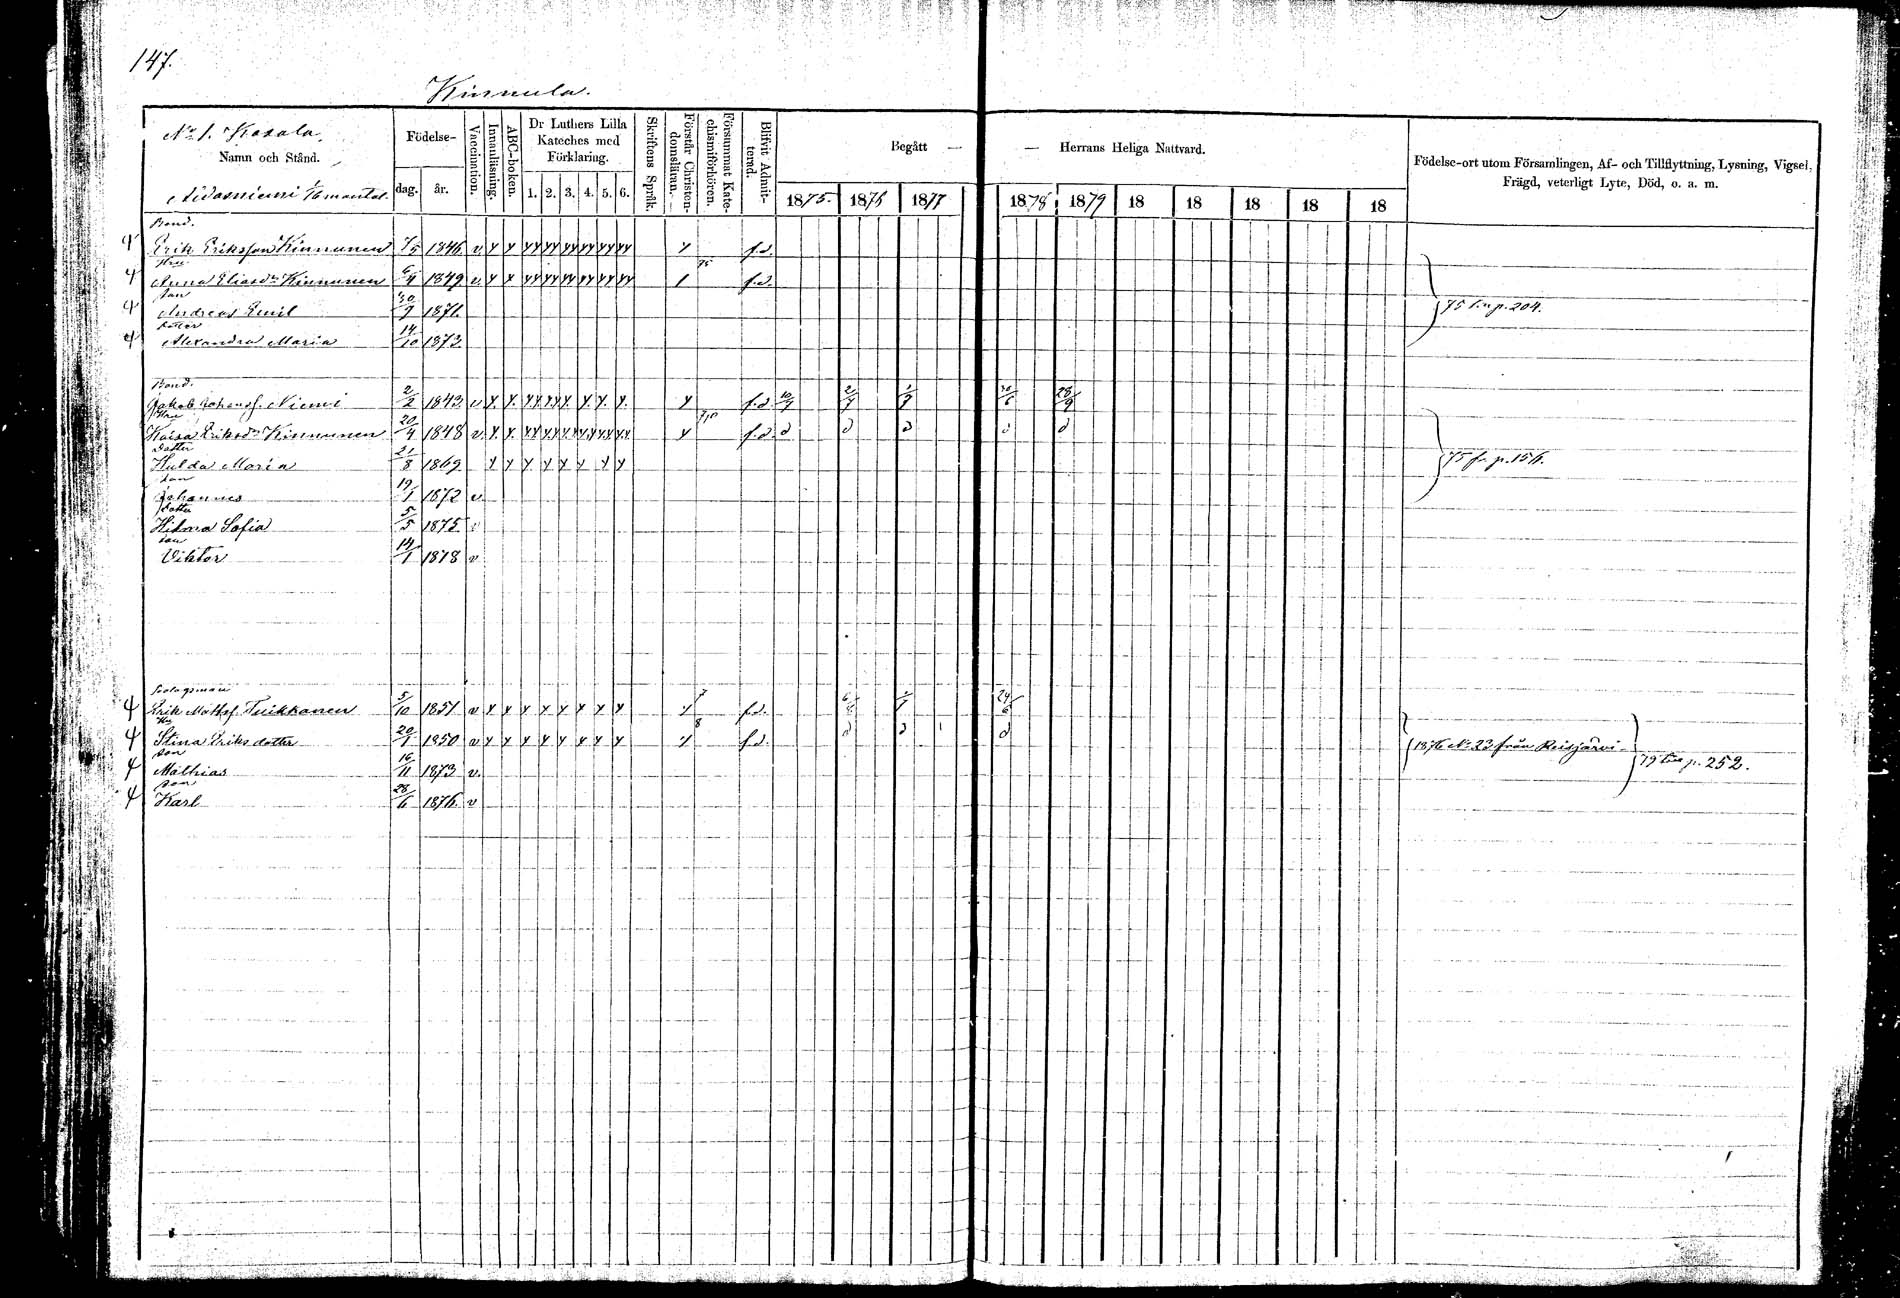 147.
Kinnula.
No 1. Kasala
Namn och Stånd.
Aidasniemi 1/6 mantal.
Födelse-
dag. år.
Vaccination.
Innanläsning.
ABC-boken.
Dr Luthers Lilla Kateches med Förklaring.
1. 2. 3. 4. 5. 6.
Skriftens Språk.
Förstår Christendomsläran.
Försummat Katechismiförhören.
Blifvit Admitterad.
Begått — — Herrans Heliga Nattvard.
1875. 1876 1877 1878 1879 18 18 18 18 18
Födelse-ort utom Församlingen, Af- och Tillflyttning, Lysning, Vigsel, Frägd, veterligt Lyte, Död, o. a. m.
Bond.
Erik Eriksson Kinnunen 7/5 1846. v. f.d.
Hru 75
Anna Eliasdr Kinnunen 6/4 1849. v. f.d.
son
Andreas Emil 30/9 1871. 75 p. 204.
dotter
Alexandra Maria 14/10 1873.
Bond.
Jakob Johansf. Niemi 2/2 1843. v f.d. 10/7 2/7 1/7 30/6 28/9
Hru
Kaisa Eriksdr Kinnunen 20/4 1848 v. f.d. d d d d d
Dotter
Hulda Maria 21/8 1869 75 fr p. 156.
son
Johannes 19/1 1872 v
Dotter
Hilma Sofia 5/5 1875. v
son
Viktor 14/1 1878 v
Bolagsman 7
Erik Mattsf. Tuikkanen 5/10 1851 v f.d. 1/7 24/6
Hu 8
Stina Eriksdotter 20/1 1850 v f.d. d d d
1876 No 23 från Reisjärvi
son
Mathias 16/11 1873 v. 79 p. 252.
son
Karl 28/6 1876. v